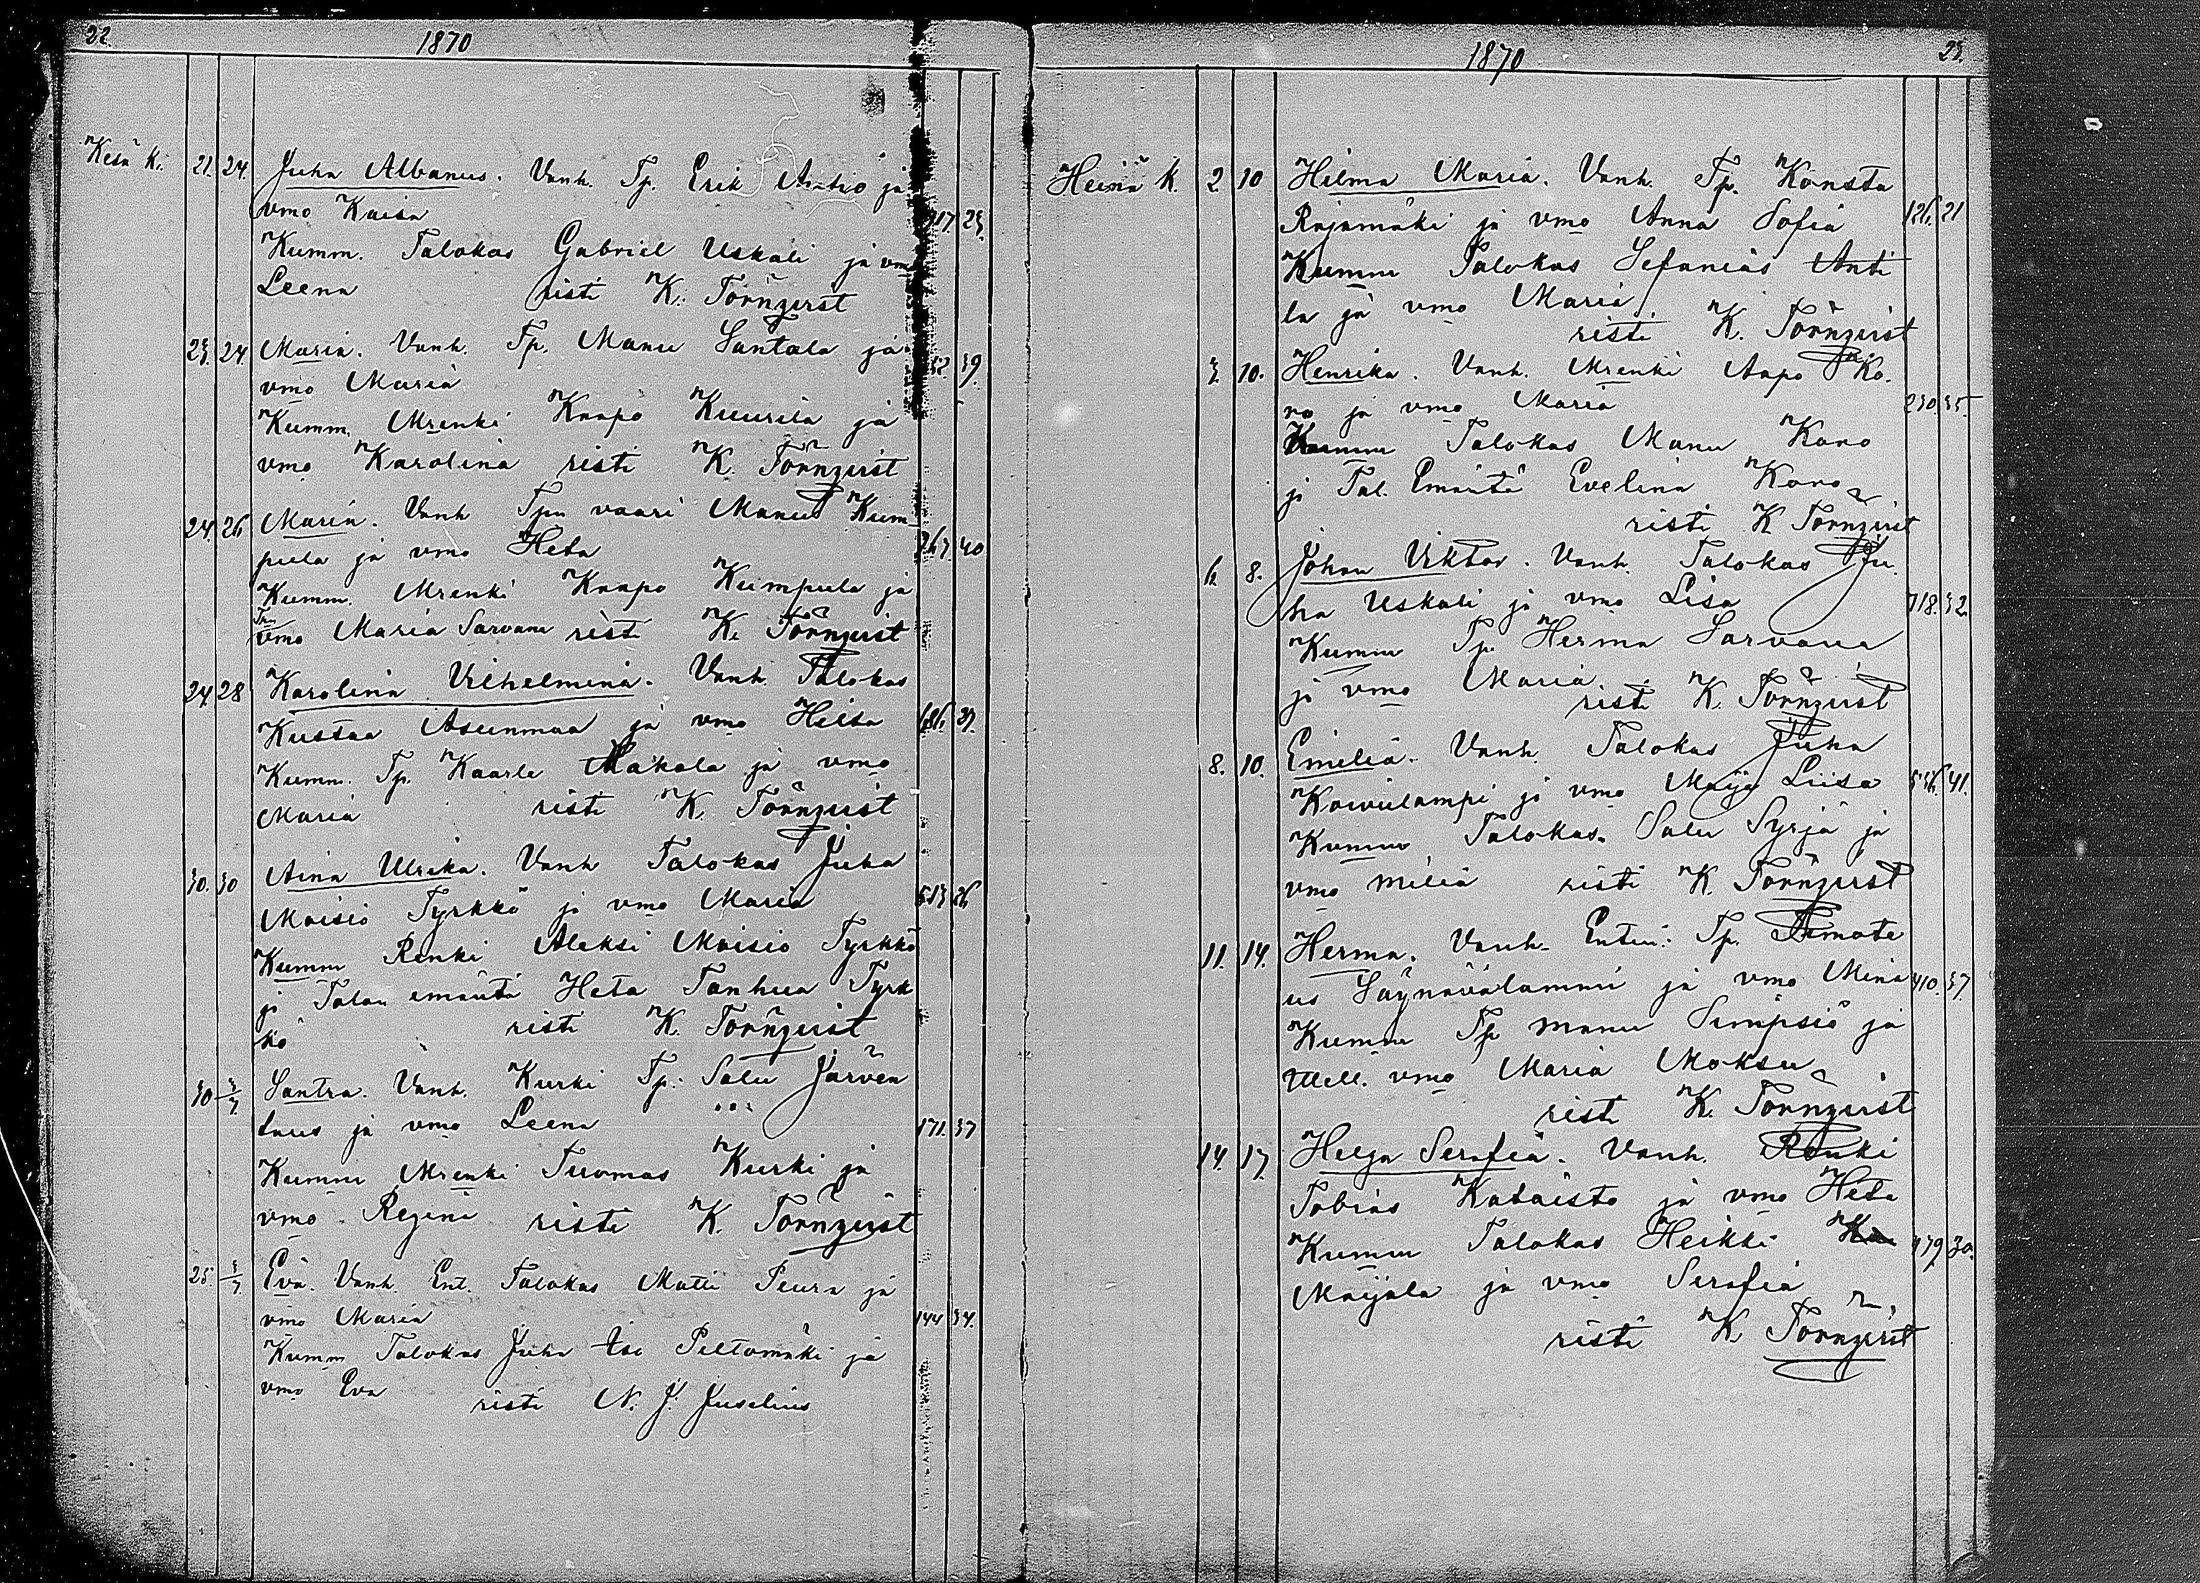 22. 1870
Kesä k. 21. 24. Juha Albanus. Vanh. Tp. Erik Anttio ja
vmo Kaisa 217 23.
Kumm. Talokas Gabriel Uskali ja vmo
Leena risti K. Törnqvist
23. 24 Maria. Vanh. Tp. Manu Santala ja
vmo Maria 39.
Kumm. Mrenki Kaapo Kuurila ja
vmo Karolina risti K. Törnqvist
24. 26 Maria. Vanh Tpn vaari Manu Kum
pula ja vmo Heta 267. 40
Kumm. Mrenki Kaapo Kumpula ja
Tpn vmo Maria Sarvana risti K. Törnqvist
24. 28 Karolina Vilhelmina. Vanh. Talokas
Kustaa Asunmaa ja vmo Heta 686. 39.
Kumm. Tp. Kaarle Makala ja vmo
Maria risti K. Törnqvist
30. 30 Aina Ulrika. Vanh Talokas Juha
Moisio Tyrkkö ja vmo Maria 26
Kumm Renki Aleksi Moisio Tyrkkö
ja Talon emäntä Heta Tanhua Tyrk
kö risti K. Törnqvist
30 3/7 Santra. Vanh. Kurki Tp. Salu Järven
taus ja vmo Leena 171. 37
Kumm Mrenki Tuomas Kurki ja
vmo Regina risti K. Törnqvist
25. 3/7 Eva. Vanh. Ent. Talokas Matti Peura ja
vmo Maria 144 34.
Kumm Talokas Juha Iso Peltomäki ja
vmo Eva risti N. J. Juselius
1870 23.
Heinä k. 2 10 Hilma Maria. Vanh. Tp. Konsta
Rajamäki ja vmo Anna Sofia 126. 21
Kumm Talokas Sefanias Anti
la ja vmo Maria
risti K. Törnqvist
3. 10. Henrika. Vanh. Mrenki Aapo Ko.
ro ja vmo Maria 230. 35.
Kumm Talokas Manu Koro
ja Tal. Emäntä Evelina Koro
risti K Törnqvist
6. 8. Johan Viktor. Vanh. Talokas Ju.
ha Uskali ja vmo Lisa 718. 32.
Kumm Tp. Herma Sarvana
ja vmo Maria
risti K. Törnqvist
8. 10. Emilia. Vanh. Talokas Juha
Koivulampi ja vmo Maija Liisa 536. 41.
Kumm Talokas Salu Syrjä ja
vmo Milia risti K. Törnqvist
11. 14. Herma. Vanh. Enten. Tp. Timote
us Säynävälammi ja vmo Mina 410. 37.
Kumm Tp Manu Simpsiö ja
Mell. vmo Maria Moksu
rist K. Törnqvist
14. 17. Helga Serafia. Vanh. Renki
Tobias Kataisto ja vmo Heta
Kumm Talokas Heikki 479. 30.
Maijala ja vmo Serafia
risti K Törnqvist